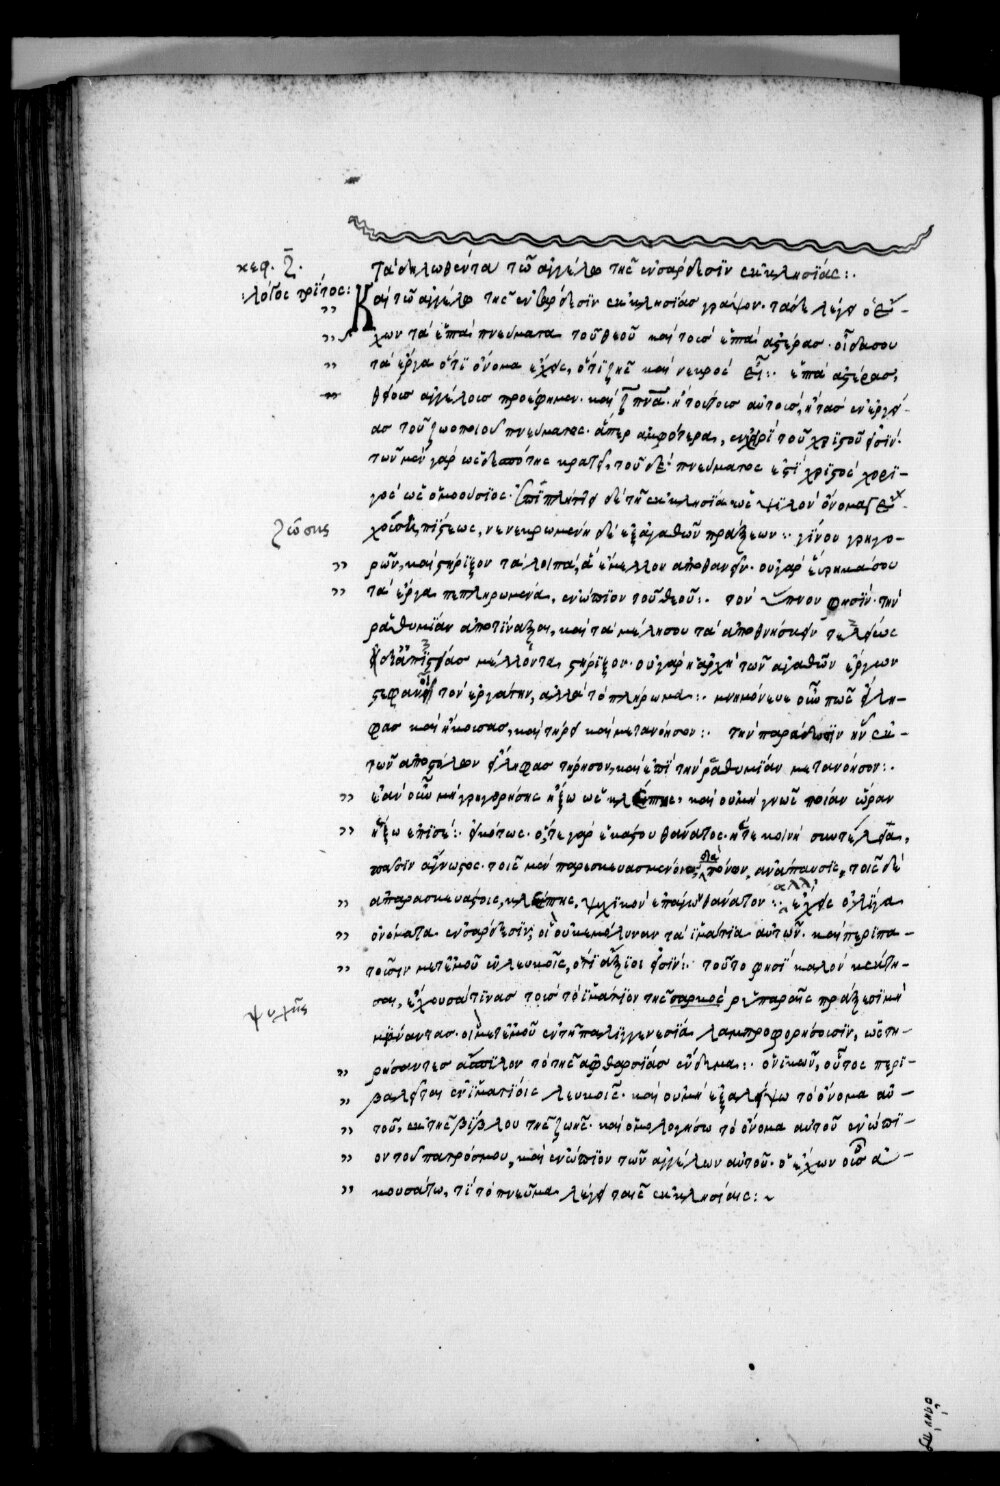 κεφ. ζ.
Τὰ δηλωθέντα τῶ ἀγγέλω τῆς ἐν σάρδεσιν ἐκκλησίας:.
λόγος τρίτος:
Καὶ τῶ ἀγγέλω τῆς ἐν σάρδεσιν ἐκκλησίας γράψον· τάδε λέγει ὁ ἔ-
χων τὰ ἑπτὰ πνεύματα τοῦ θεοῦ καὶ τοὺς ἑπτὰ ἀστέρας· οἶδα σου
τὰ ἔργα ὅτι ὄνομα ἔχεις, ὅτι ζῆς καὶ νεκρὸς εἶ:. ἑπτὰ ἀστέρας,
θείους ἀγγέλους προέφημεν· καὶ ζ πνα· ἢ τούτους αὐτούς, ἢ τὰς ἐνεργεί-
ας τοῦ ζωοποιοῦ πνεύματος· ἅπερ ἀμφότερα, ἐν χειρὶ τοῦ χριστοῦ εἰσίν·
τῶν μὲν γὰρ ὡς δεσπότης κρατεῖ, τοῦ δὲ πνεύματος ἐστὶ χριστὸς χορη-
γὸς ὡς ὁμοούσιος· ἐπιπλήττει δὲ τῆ ἐκκλησία ὡς ψιλὸν ὄνομα
πίστεως, νενεκρωμένη δὲ ἐξ ἀγαθῶν πράξεων:. γίνου γρηγο-
ζώσης
ρῶν, καὶ στήριξον τὰ λοιπά, ἃ ἔμελλον ἀποθανεῖν· οὐ γὰρ εὕρηκά σου
τὰ ἔργα πεπληρωμένα, ἐνώπιον τοῦ θεοῦ:. τὸν ὕπνον φησίν· τὴν
ῥαθυμίαν ἀποτίναξαι, καὶ τὰ μέλη σου τὰ ἀποθνήσκειν τελείως
μέλλοντα, στήριξον· οὐ γὰρ ἡ ἀρχὴ τῶν ἀγαθῶν ἔργων
στεφανοῖ τὸν ἐργάτην, ἀλλὰ τὸ πλήρωμα:. μνημόνευε οὖν πῶς εἴλη-
φας καὶ ἤκουσας, καὶ τήρει καὶ μετανόησον:. τὴν παράδοσιν ἣν ἐκ
τῶν ἀποστόλων εἴληφας τήρησον, καὶ ἐπὶ τὴν ῥαθυμίαν μετανόησον:.
ἐὰν οὖν μὴ γρηγορήσης ἥξω ὡς κλέπτης, καὶ οὐ μὴ γνῶς ποίαν ὥραν
ἥξω ἐπὶ σέ:. εἰκότως· ὅτε γὰρ ἑκάστου θάνατος· ἥτε κοινὴ συντέλεια,
πᾶσιν ἄγνωστος· τοῖς μὲν παρεσκευασμένοις, διὰ πόνων, ἀνάπαυσις, τοῖς δὲ
ἀπαρασκεύαστοις, κλέπτης, ψυχικὸν ἐπάγων θάνατον:. ἀλλ' ἔχεις ὀλίγα
ὀνόματα ἐν σάρδεσιν, οἳ οὐκ ἐμόλυναν τὰ ἱμάτια αὐτῶν· καὶ περιπα-
τοῦσιν μετ' ἐμοῦ ἐν λευκοῖς, ὅτι ἄξιοι εἰσίν:. τοῦτο φησὶ καλὸν κέκτη-
σαι, ἔχουσα τινὰς τοὺς τὸ ἱμάτιον τῆς σαρκὸς ῥυπαραῖς πράξεσι μὴ
ψυχῆς
μιάναντας· οἳ μετ' ἐμοῦ ἐν τῆ παλιγγενεσία λαμπροφορήσουσιν, ὡς τη-
ρήσαντες ἄσπιλον τὸ τῆς ἀφθαρσίας ἔνδυμα:. ὁ νικῶν, οὗτος περι-
βαλεῖται ἐν ἱματίοις λευκοῖς· καὶ οὐ μὴ ἐξαλείψω τὸ ὄνομα αὐ-
τοῦ, ἐκ τῆς βίβλου τῆς ζωῆς· καὶ ὁμολογήσω τὸ ὄνομα αὐτοῦ ἐνώπι-
ον τοῦ πατρός μου, καὶ ἐνώπιον τῶν ἀγγέλων αὐτοῦ· ὁ ἔχων οὖς ἀ-
κουσάτω, τί τὸ πνεῦμα λέγει ταῖς ἐκκλησίαις:~